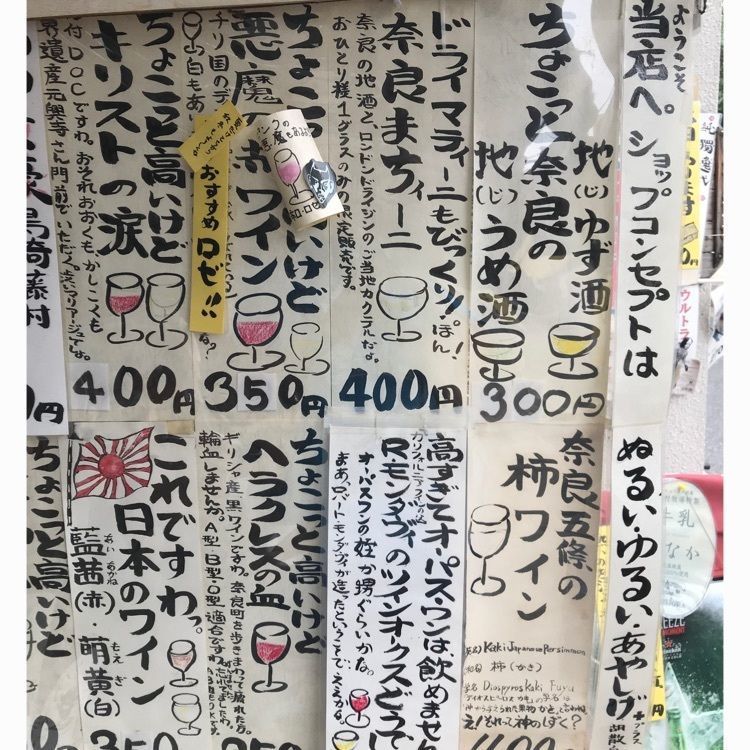 ようこそ
当店へ。ショップコンセプトは
ぬるい・ゆるい・あやしげ
プラス
ちょこっと奈良の
地(じ)ゆず酒
地(じ)うめ酒
300円
ドライマティーニもびっくり!ぽん!
奈良まちィーニ
奈良の地酒と、ロンドンドライジンのご当地カクテルだよ。
おひとり様1グラスのみ
限定販売です。
400円
ちょこっと
高いけど
悪魔
赤ワイン
チリ国の
350円
おすすめ
ロゼ!!
ちょこっと高いけど
キリストの涙
付DOCですわ。おそれおおくも、かしこくも
界遺産元興寺さん門前でいただく。
400円
奈良五條の
柿ワイン
英名)Kaki Japanese Persimmon
和名 柿(かき)
学名 Diospyros Kaki Fuyu
え!それって神のしずく?
高すぎてオーパスワンは、飲めませ
カリフォルニア
Rモンダヴィのツインオークスどうで
オーパスワンの姪か甥ぐらいかな。
まあ、ロバート・モンダヴィが造ったということで、ええかな。
ちょこっと高いけど
ヘラクレスの血
ギリシャ産黒ワインですわ。奈良町を歩きまわって疲れた方。
輸血しませんか。A型・B型・O型適合です
これですわ。
日本のワイン
藍茜(赤)・萌黄(白)
あい あかね
もえ ぎ
ちょこっと高いけど
牛乳
ウルトラ